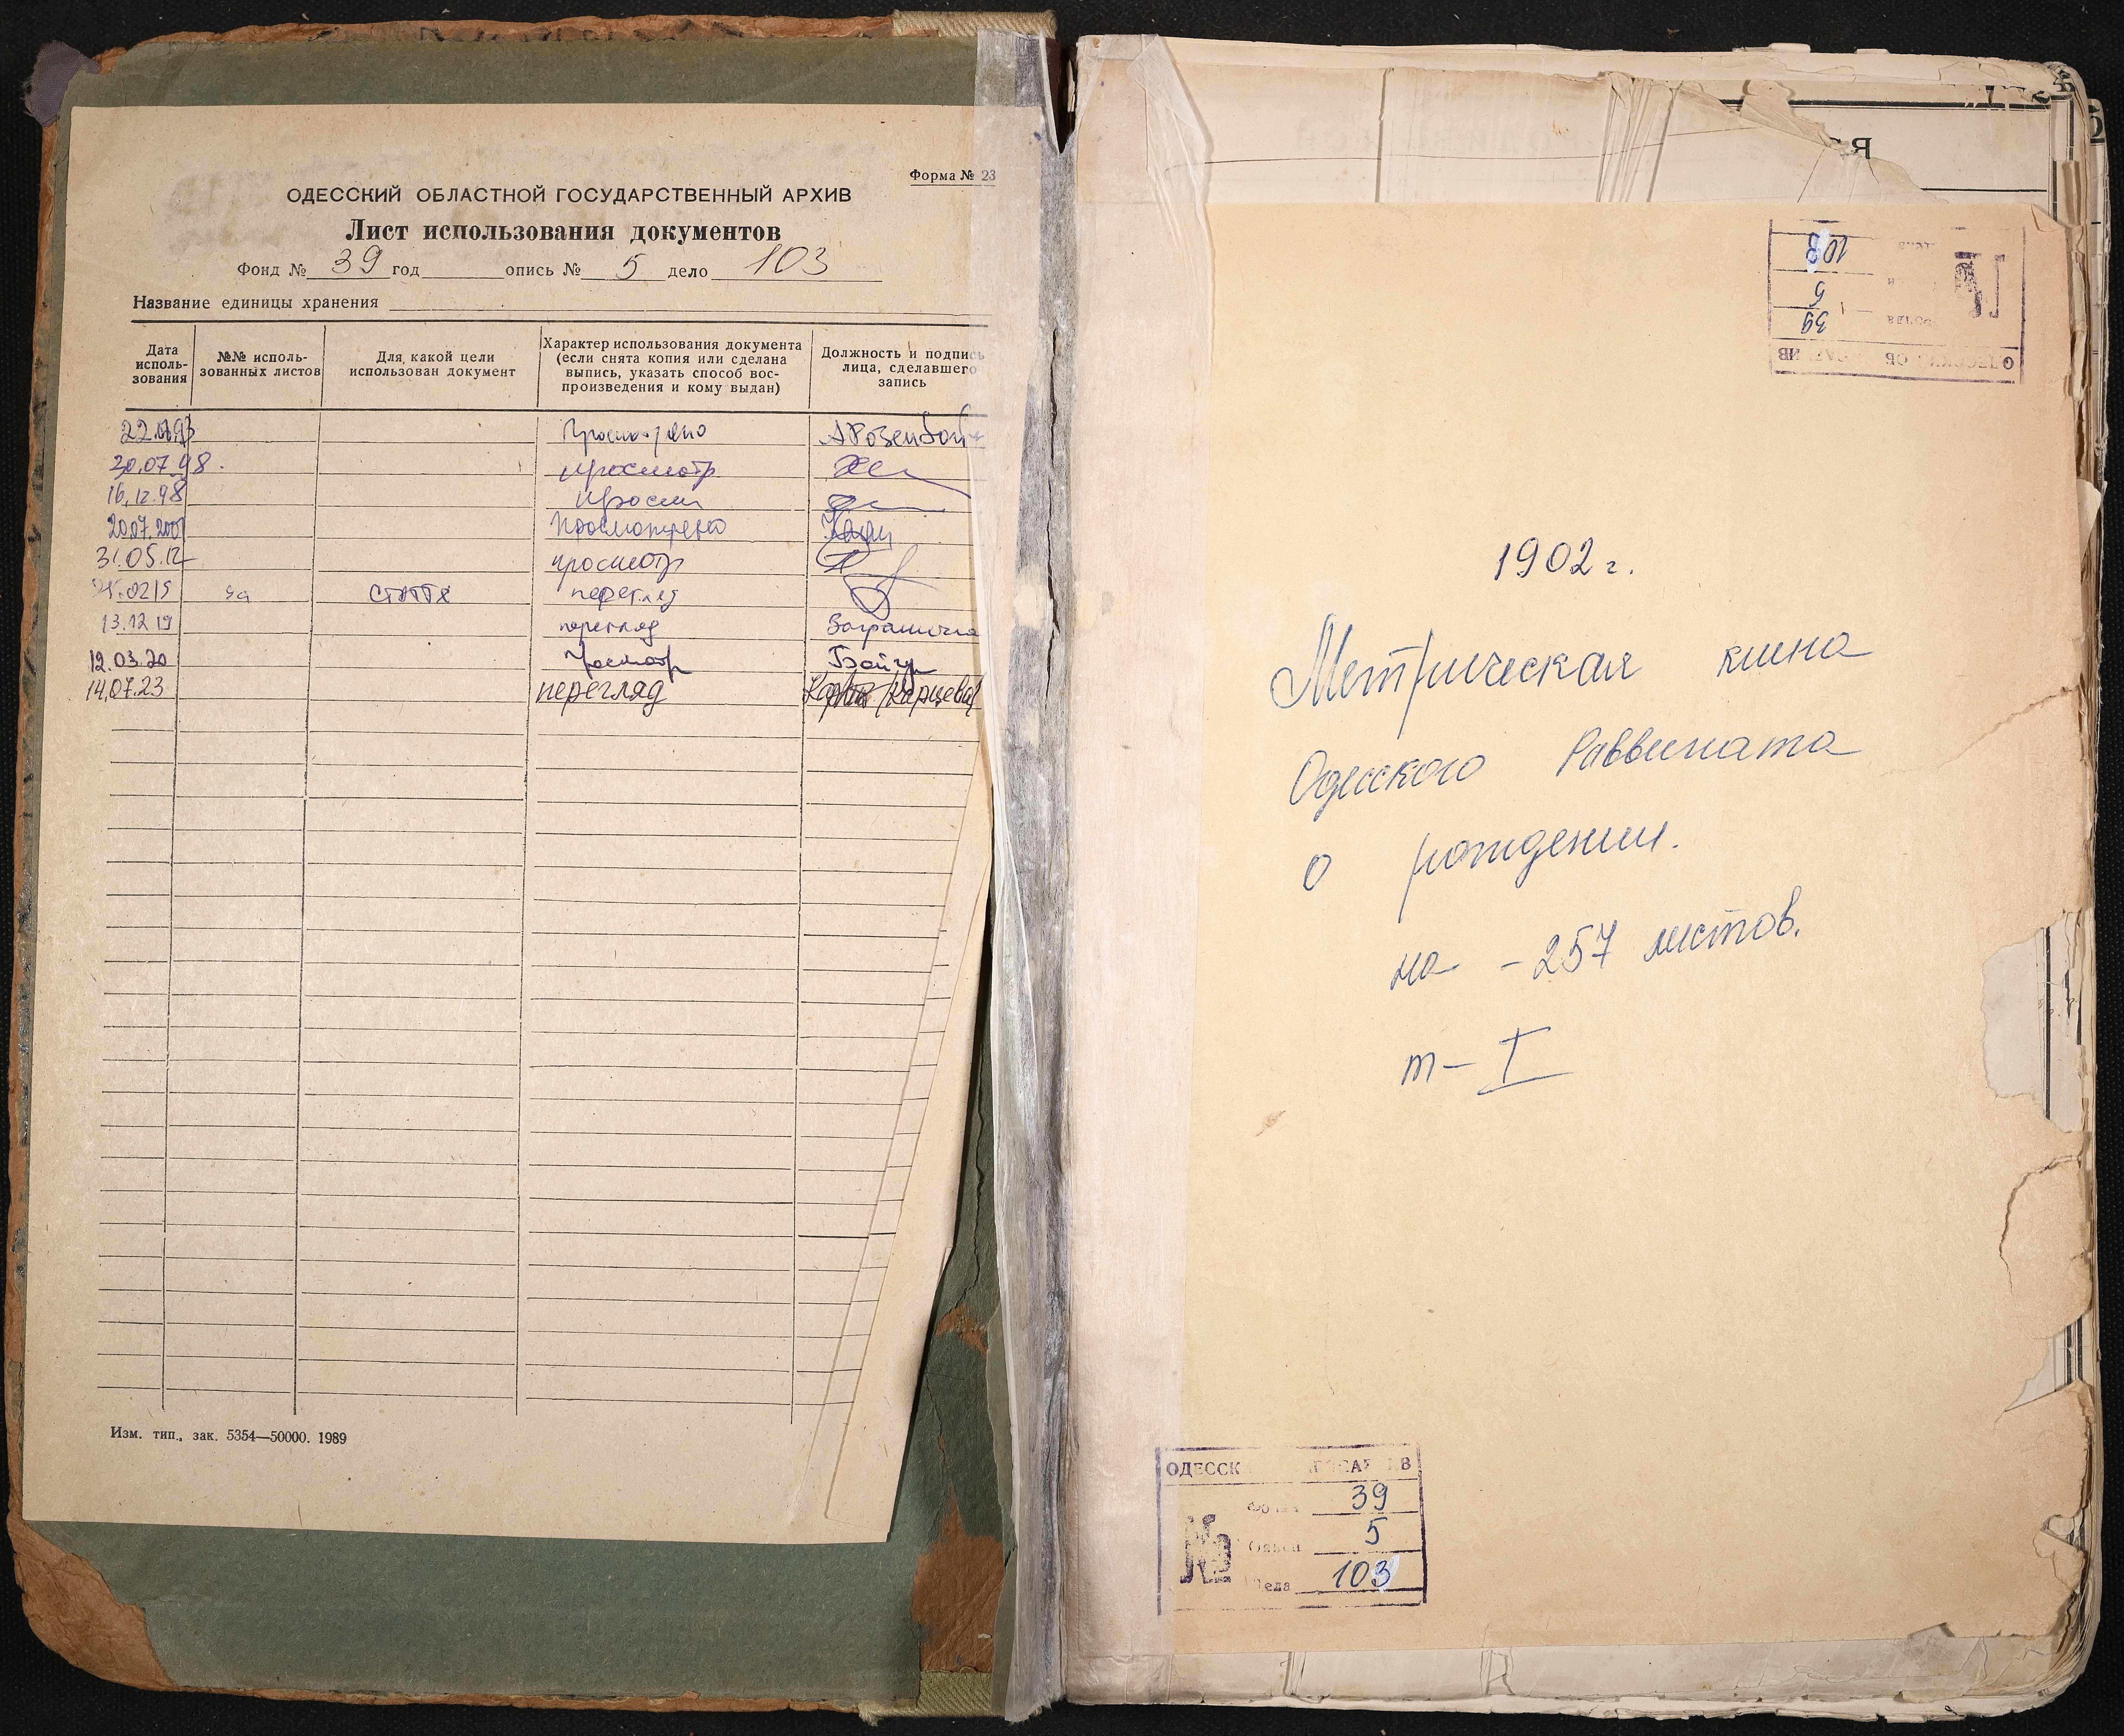 Форма № 23
ОДЕССКИЙ ОБЛАСТНОЙ ГОСУДАРСТВЕННЫЙ АРХИВ
Лист использования документов
Фонд № 39 год опись № 5 дело 103
Название единицы хранения
Дата исполь- зования
№№ исполь- зованных листов
Для какой цели использован документ
Характер использования документа (если снята копия или сделана выпись, указать способ вос- произведения и кому выдан)
Должность и подпись лица, сделавшего запись
Просмотрено
20.07.98. просмотр
16.12.98 просм
20.07.2001 Просмотрено
31.05.12 просмотр
02/5 стаття перегляд
13.12 19 перегляд
12.03.20 Просмотр
14.07.23 перегляд
Изм. тип., зак. 5354—50000. 1989
СЯ
39
5
103
1902 г.
Метрическая книга
Одесского Раввината
о рождении.
на - 257 листов.
т- I
ОДЕССК
39
5
103
№